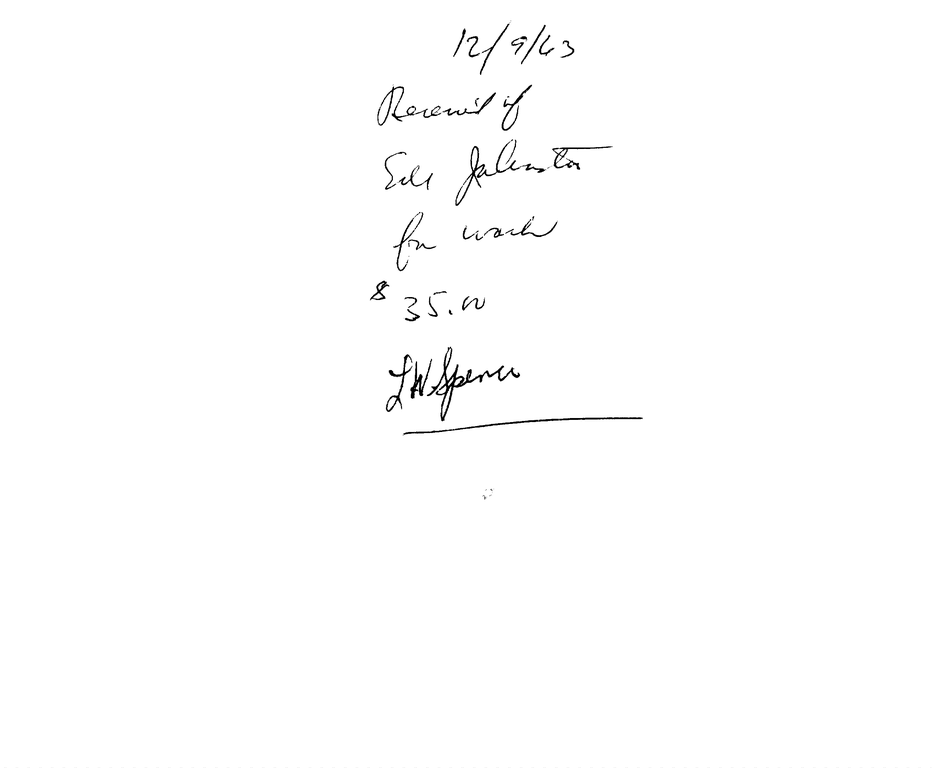 12/9/63
Received of
Johnston
for work
$ 35.00
LW Spence